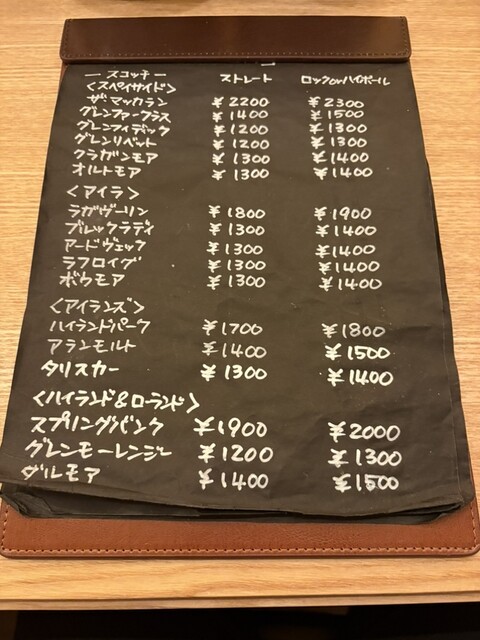 ― スコッチ ― ストレート ロックorハイボール
〈スペイサイド〉
ザ・マッカラン ¥2200 ¥2300
グレンファークラス ¥1400 ¥1500
グレンフィデック ¥1200 ¥1300
グレンリベット ¥1200 ¥1300
クラガンモア ¥1300 ¥1400
オルトモア ¥1300 ¥1400
〈アイラ〉
ラガヴーリン ¥1800 ¥1900
ブレックラディ ¥1300 ¥1400
アードヴェック ¥1300 ¥1400
ラフロイグ ¥1300 ¥1400
ボウモア ¥1300 ¥1400
〈アイランズ〉
ハイランドパーク ¥1700 ¥1800
アランモルト ¥1400 ¥1500
タリスカー ¥1300 ¥1400
〈ハイランド&ローランド〉
スプリングバンク ¥1900 ¥2000
グレンモーレンジー ¥1200 ¥1300
ダルモア ¥1400 ¥1500